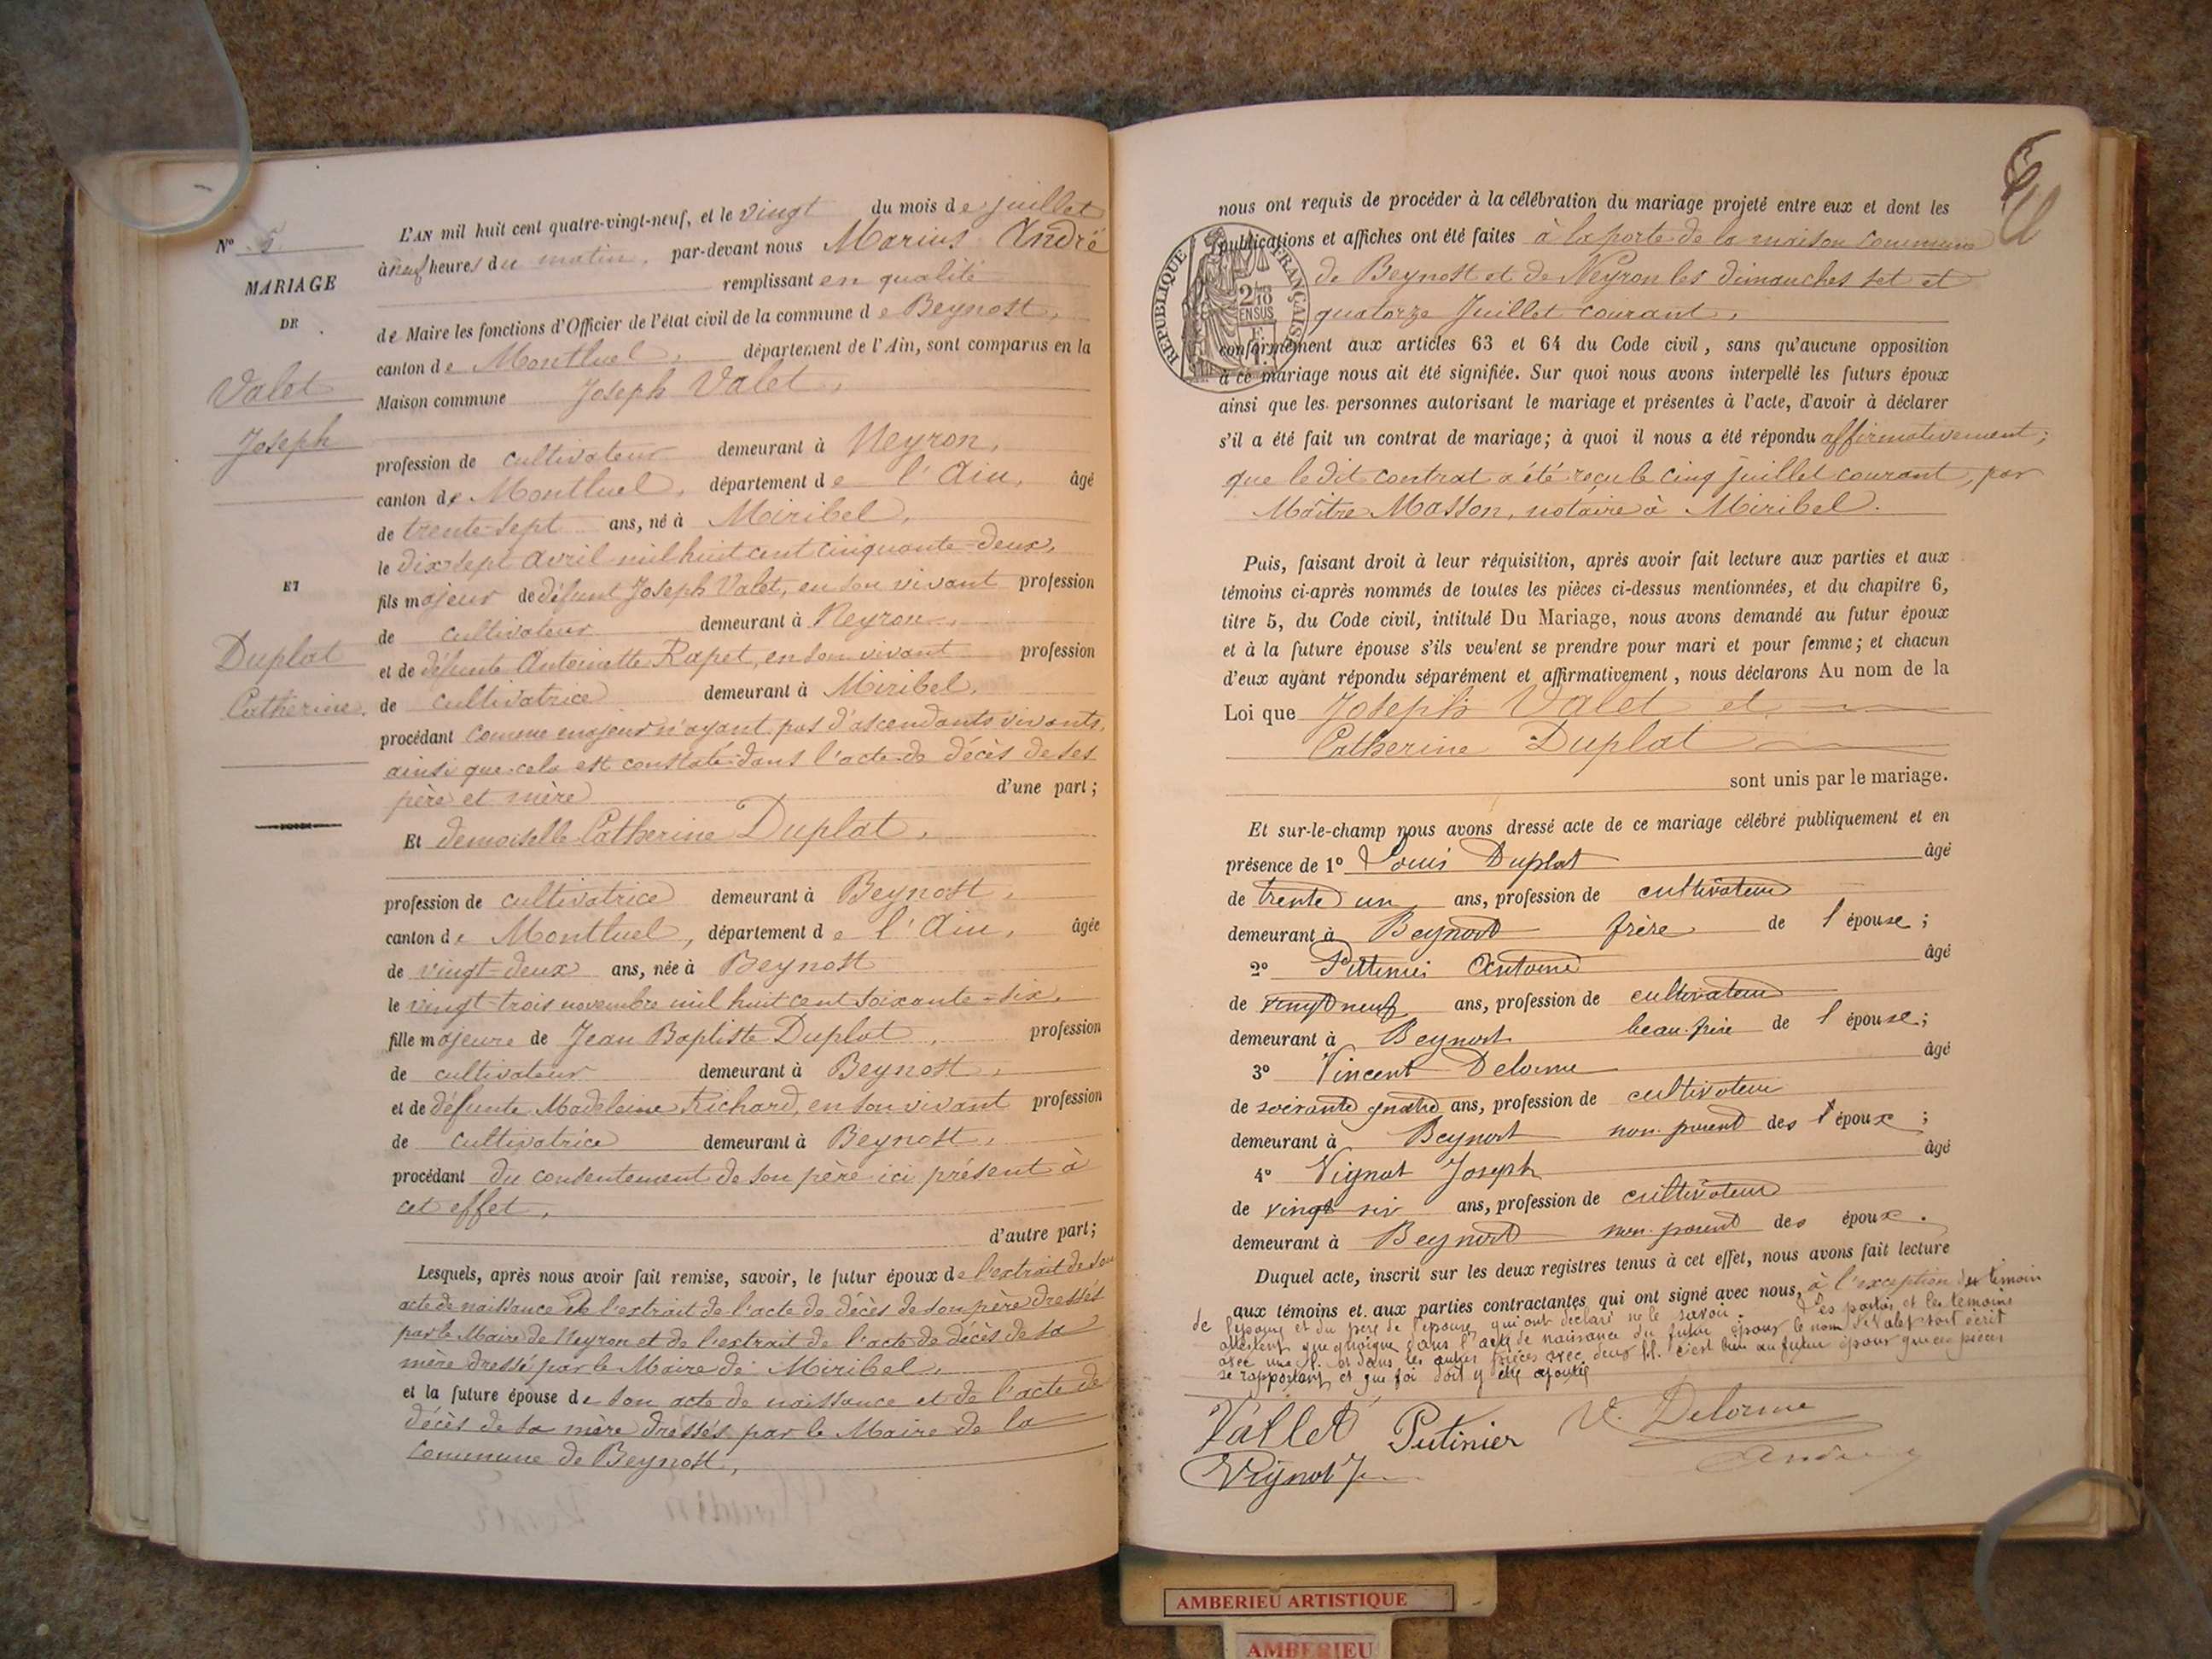 N° 5
MARIAGE
DE
Valet
Joseph
ET
Duplat
Catherine.
L'AN mil huit cent quatre-vingt-neuf, et le vingt du mois de juillet
à neuf heures du matin, par-devant nous Marius André
remplissant en qualité
de Maire les fonctions d'Officier de l'état civil de la commune de Beynost,
canton de Montluel, département de l'Ain, sont comparus en la
Maison commune Joseph Valet,
profession de cultivateur demeurant à Neyron,
canton de Montluel, département de l'Ain, âgé
de trente-sept ans, né à Miribel,
le dix sept avril mil huit cent cinquante-deux,
fils majeur de défunt Joseph Valet, en son vivant profession
de cultivateur demeurant à Neyron,
et de défunte Antoinette Rapet, en son vivant profession
de cultivatrice demeurant à Miribel,
procédant comme majeur n'ayant pas d'ascendants vivants,
ainsi que cela est constaté dans l'acte de décès de ses
père et mère d'une part;
Et demoiselle Catherine Duplat,
profession de cultivatrice demeurant à Beynost,
canton de Montluel, département de l'Ain, âgée
de vingt-deux ans, née à Beynost
le vingt-trois novembre mil huit cent soixante-six,
fille majeure de Jean Baptiste Duplat, profession
de cultivateur demeurant à Beynost,
et de défunte Madeleine Richard, en son vivant profession
de cultivatrice demeurant à Beynost,
procédant du consentement de son père ici présent à
cet effet,
d'autre part;
Lesquels, après nous avoir fait remise, savoir, le futur époux de l'extrait de son
acte de naissance de l'extrait de l'acte de décès de son père dressés
par le Maire de Neyron et de l'extrait de l'acte de décès de sa
mère dressé par le Maire de Miribel,
et la future épouse de son acte de naissance et de l'acte de
décès de sa mère dressés par le Maire de la
commune de Beynost,
nous ont requis de procéder à la célébration du mariage projeté entre eux et dont les
publications et affiches ont été faites à la porte de la maison commune
de Beynost et de Neyron les dimanches sept et
quatorze Juillet courant,
conformément aux articles 63 et 64 du Code civil, sans qu'aucune opposition
à ce mariage nous ait été signifiée. Sur quoi nous avons interpellé les futurs époux
ainsi que les personnes autorisant le mariage et présentes à l'acte, d'avoir à déclarer
s'il a été fait un contrat de mariage; à quoi il nous a été répondu affirmativement;
que le dit contrat a été reçu le cinq juillet courant, par
Maître Masson, notaire à Miribel.
RÉPUBLIQUE FRANÇAISE
2/10 EN SUS
Puis, faisant droit à leur réquisition, après avoir fait lecture aux parties et aux
témoins ci-après nommés de toutes les pièces ci-dessus mentionnées, et du chapitre 6,
titre 5, du Code civil, intitulé Du Mariage, nous avons demandé au futur époux
et à la future épouse s'ils veulent se prendre pour mari et pour femme; et chacun
d'eux ayant répondu séparément et affirmativement, nous déclarons Au nom de la
Loi que Joseph Valet et
Catherine Duplat
sont unis par le mariage.
Et sur-le-champ nous avons dressé acte de ce mariage célébré publiquement et en
présence de 1° Louis Duplat âgé
de trente un ans, profession de cultivateur
demeurant à Beynost frère de l'épouse;
2° Antoine âgé
de vingt neuf ans, profession de cultivateur
demeurant à Beynost beau-frère de l'épouse;
3° Vincent Delorme âgé
de soixante quatre ans, profession de cultivateur
demeurant à Beynost non parent des époux;
4° Vignat Joseph âgé
de vingt six ans, profession de cultivateur
demeurant à Beynost non parent des époux.
Duquel acte, inscrit sur les deux registres tenus à cet effet, nous avons fait lecture
aux témoins et aux parties contractantes qui ont signé avec nous, à l'exception du témoin
de l'épouse et du père de l'épouse qui ont déclaré ne le savoir. Les parties et les témoins
attestent que quoique dans l'acte de naissance du futur époux le nom de Valet soit écrit
avec une l. et dans les autres pièces avec deux ll. c'est bien au futur époux que ces pièces
se rapportent et que foi doit y être ajoutée
Vallet Putinier V. Delorme
Vignat J. André
AMBERIEU ARTISTIQUE
AMBERIEU